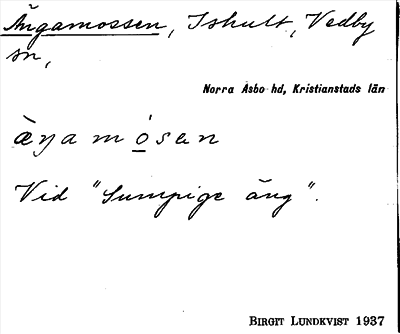 Ängamossen, Ishult, Vedby
sn,
Norra Åsbo hd, Kristianstads län
æ̀ŋamó̲sen
Vid "Sumpige äng".
BIRGIT LUNDKVIST 1937